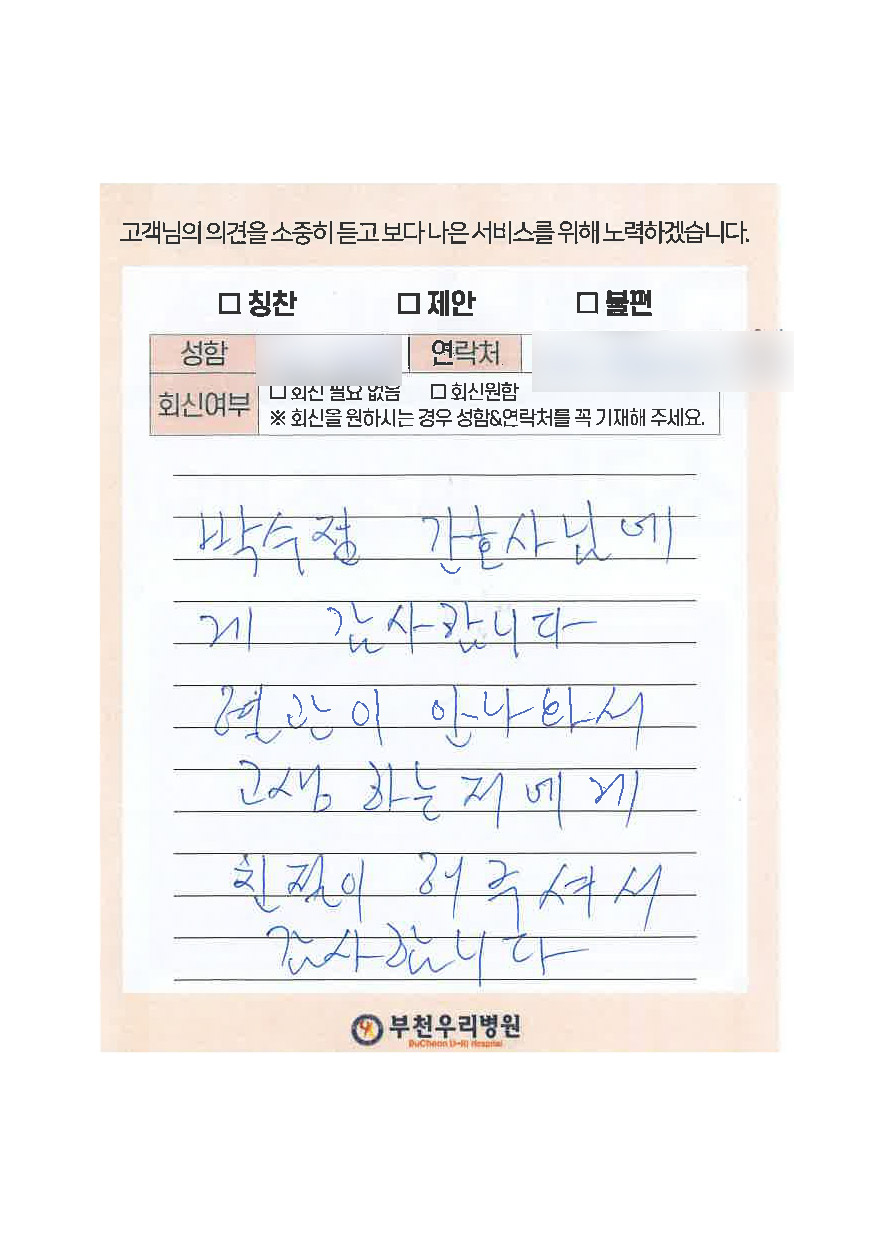 고객님의 의견을 소중히 듣고 보다 나은 서비스를 위해 노력하겠습니다.
□ 칭찬 □ 제안 □ 불편
성함 연락처
회신여부 □ 회신 필요 없음 □ 회신원함
※ 회신을 원하시는 경우 성함&연락처를 꼭 기재해 주세요.
박수정 간호사님에
게 감사합니다
혈관이 안나와서
고생 하는 저에게
친절이 해 주셔서
감사합니다
부천우리병원
BuCheon U-Ri Hospital